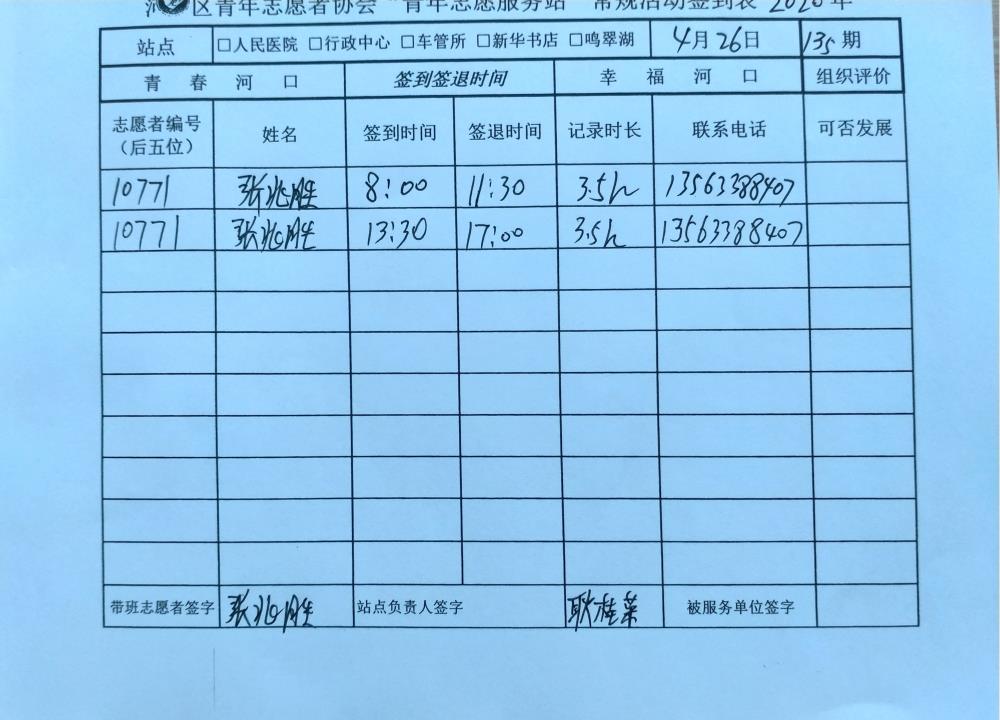 区青年志愿者协会“青年志愿服务站”常规活动签到表 2020 年
站点 □人民医院 □行政中心 □车管所 □新华书店 □鸣翠湖 4月26日 135期
青春河口 签到签退时间 幸福河口 组织评价
志愿者编号（后五位） 姓名 签到时间 签退时间 记录时长 联系电话 可否发展
10771 张兆胜 8:00 11:30 3.5h 13563388407
10771 张兆胜 13:30 17:00 3.5h 13563388407
带班志愿者签字 张兆胜 站点负责人签字 耿桂荣 被服务单位签字